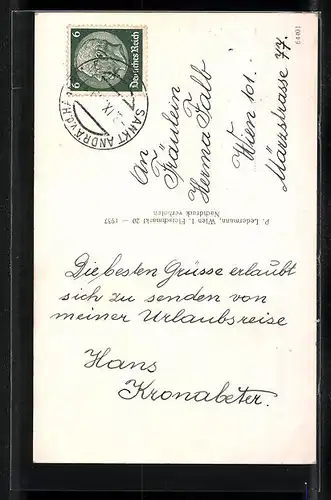 6 6
Deutsches Reich
SANKT ANDRÄ V. D.
64401
An
Fräulein
Herma Falb
Wien 101.
Märzstrasse 77.
P. Ledermann, Wien I. Fleischmarkt 20 — 1937
Nachdruck verboten
Die besten Grüsse erlaubt
sich zu senden von
meiner Urlaubsreise
Hans
Kronabeter.